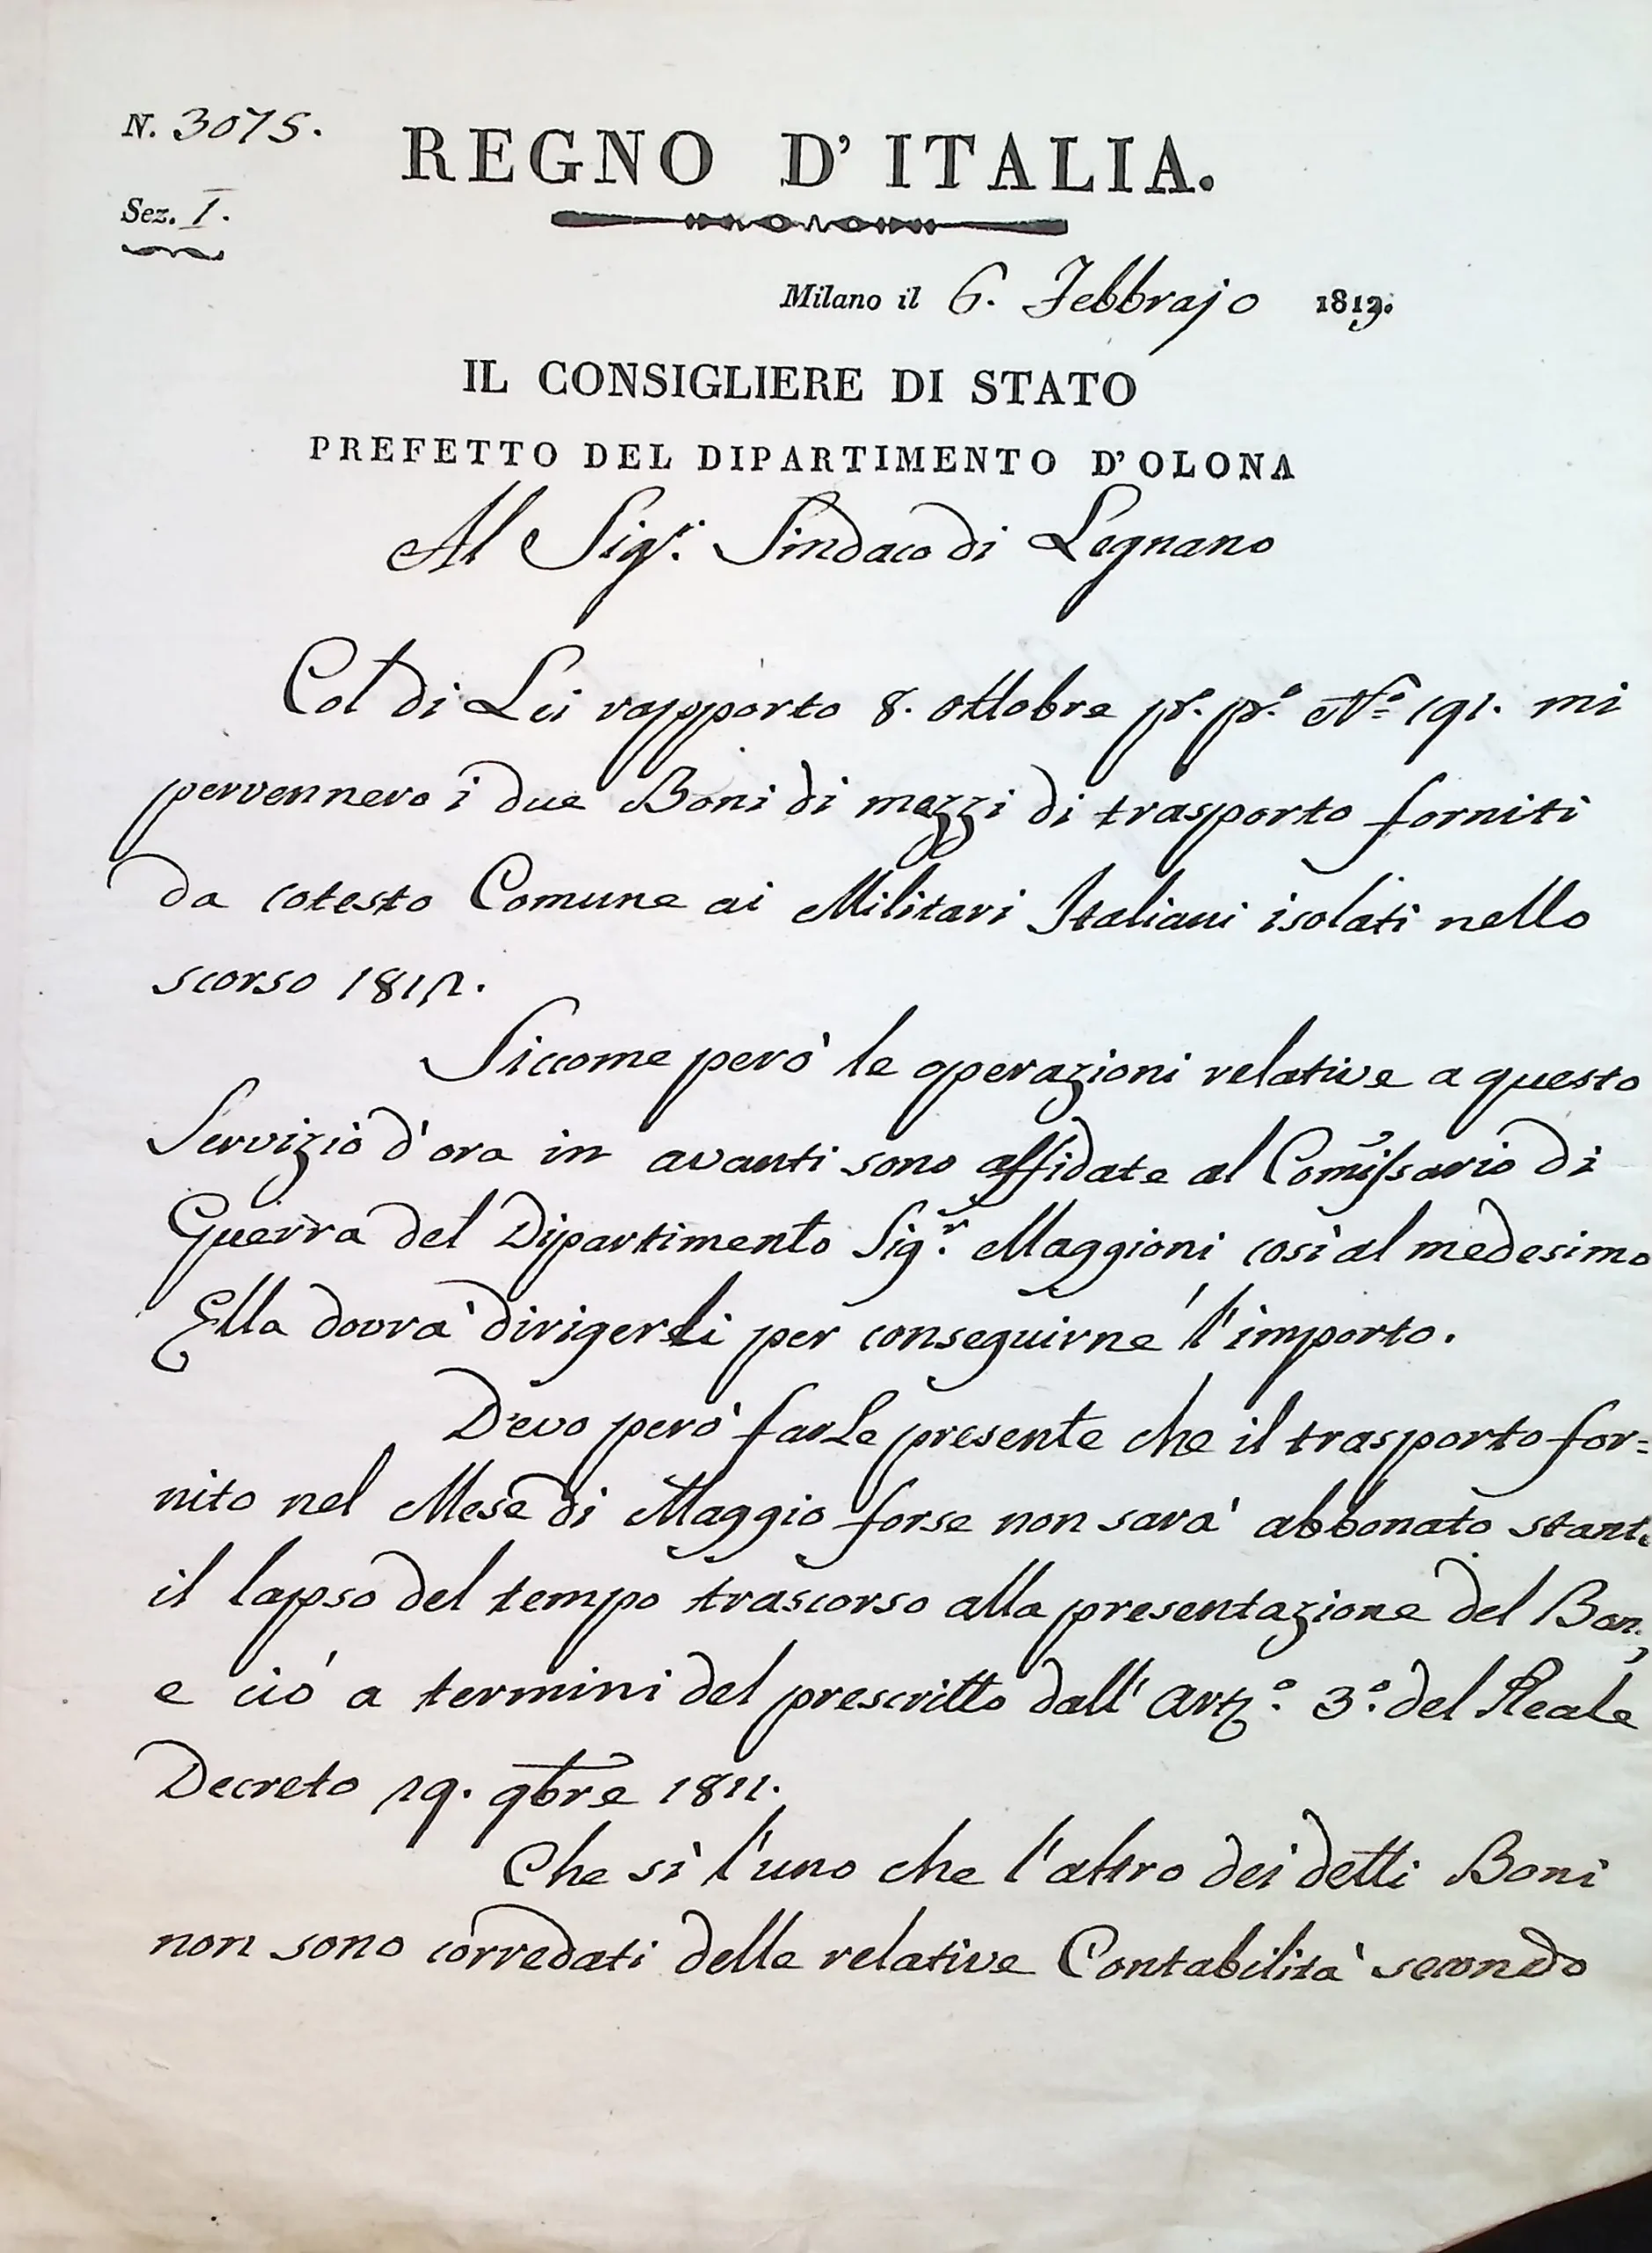 N. 3075.
REGNO D' ITALIA.
Sez. I.
Milano il 6. Febbrajo 1813.
IL CONSIGLIERE DI STATO
PREFETTO DEL DIPARTIMENTO D'OLONA
Al Sigr. Sindaco di Legnano
Col di Lei rapporto 8. ottobre pr. pr.º Nº 191. mi
pervennero i due Boni di mezzi di trasporto forniti
da cotesto Comune ai Militari Italiani isolati nello
scorso 1812.
Siccome però le operazioni relative a questo
Servizio d'ora in avanti sono affidate al Comissario di
Guerra del Dipartimento Sigr. Maggioni così al medesimo
Ella dovrà dirigersi per conseguirne l'importo.
Devo però farLe presente che il trasporto for=
nito nel Mese di Maggio forse non sarà abbonato stante
il lapso del tempo trascorso alla presentazione del Bon,
e ciò a termini del prescritto dall' Artº. 3º. del Reale
Decreto 19. 9bre 1811.
Che sì l'uno che l'altro dei detti Boni
non sono corredati delle relative Contabilità secondo